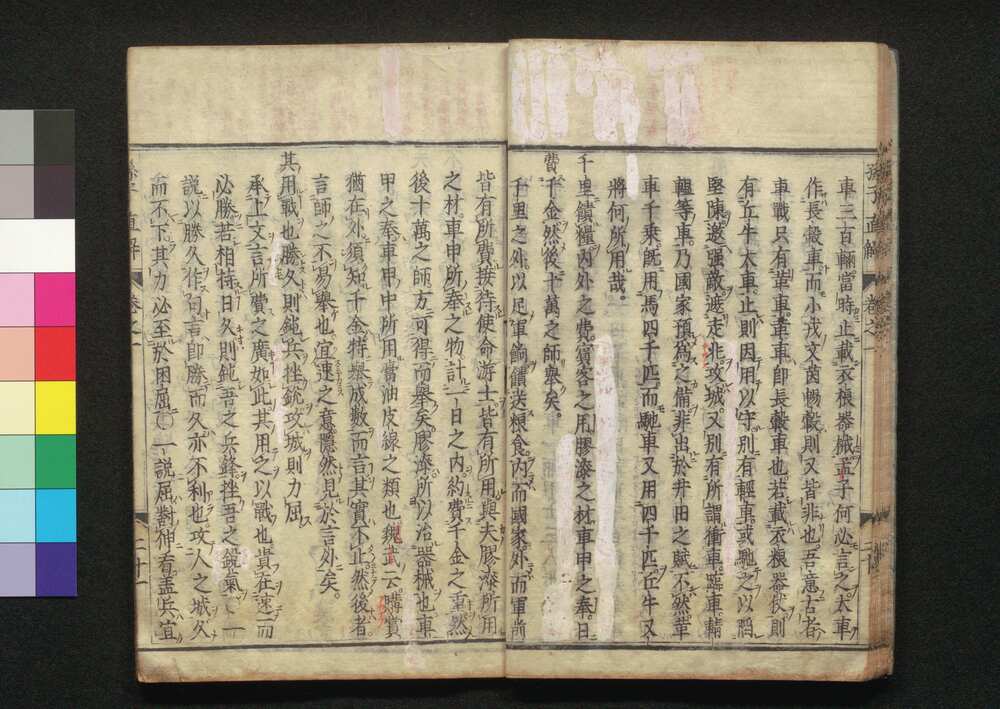 孫子直解 卷之一
車三百輛當時止載衣粮器械孟子何必言之大車
作長轂車而小戎文茵暢轂則又皆非也吾意古者
車戰只有革車革車即長轂車也若載衣粮器仗則
有丘牛大車止則因用以守別有輕車或馳之以蹈
堅陳邀强敵遮走北攻城又別有所謂衝車
輕等車乃國家預為之備非出於井田之賦不然革
車千乘既用馬四千匹而馳車又用四千匹丘牛又
將何所用哉
千里饋糧內外之費賓客之用膠漆之材車甲之奉日
費千金然後十萬之師舉矣
千里之外以足軍餉饋送粮食內而國家外而軍前
皆有所費接待使命游士皆有所用與夫膠漆所用
之材車甲所奉之物計一日之內約費千金之重然
後十萬之師方可得而舉矣膠漆所以治器械也車
甲之奉車甲中所用當油皮線之類也魏武云購賞
猶在外須知千金特舉成數而言其實不止然後者
言師之不易舉也宜速之意隱然見於言外矣
其用戰也勝久則鈍兵挫銳攻城則力屈
承上文言所費之廣如此其用之以戰也貴在速而
必勝若相持日久則鈍吾之兵鋒挫吾之銳氣一
說以勝久作句言即勝而久亦不利也攻人之城久
而不下其力必至於困屈○一說屈對神看盖兵宜
直解 卷之一